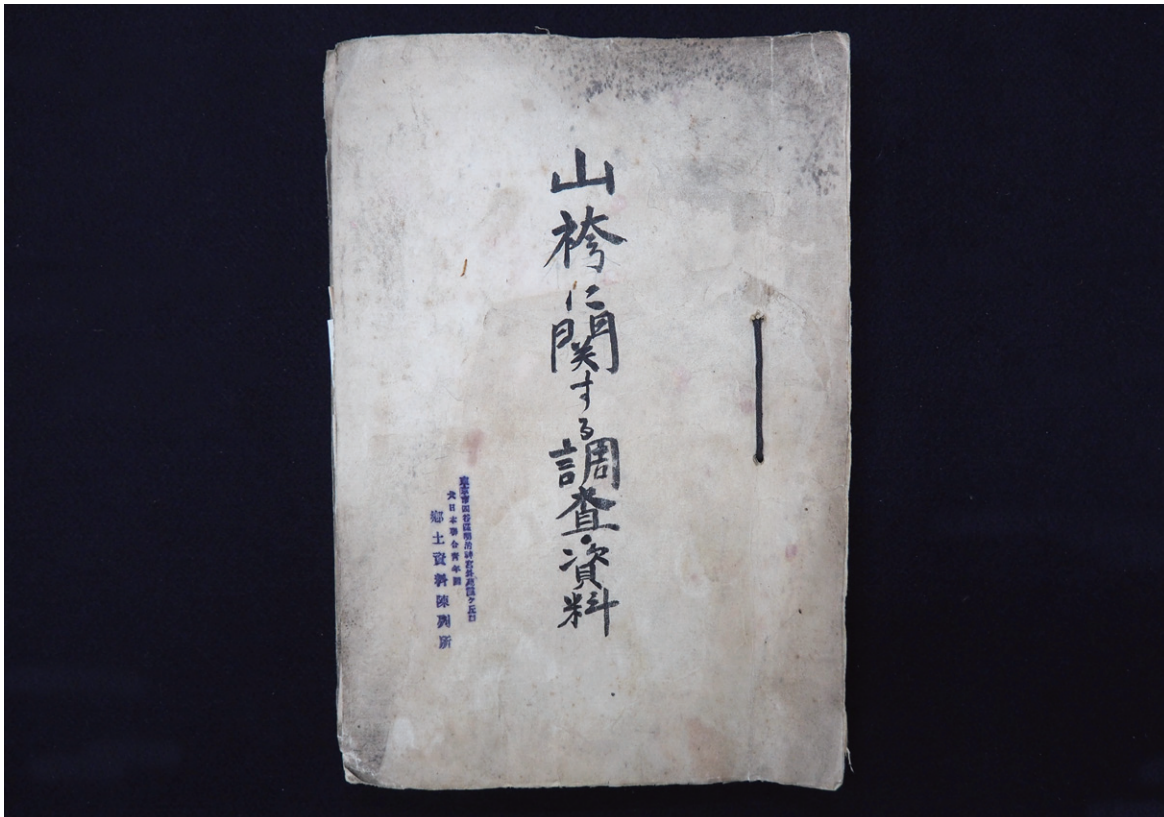 山袴に関する調査資料
東京市四谷區明治神宮外苑霞ヶ丘町
大日本聯合青年團
郷土資料陳列所